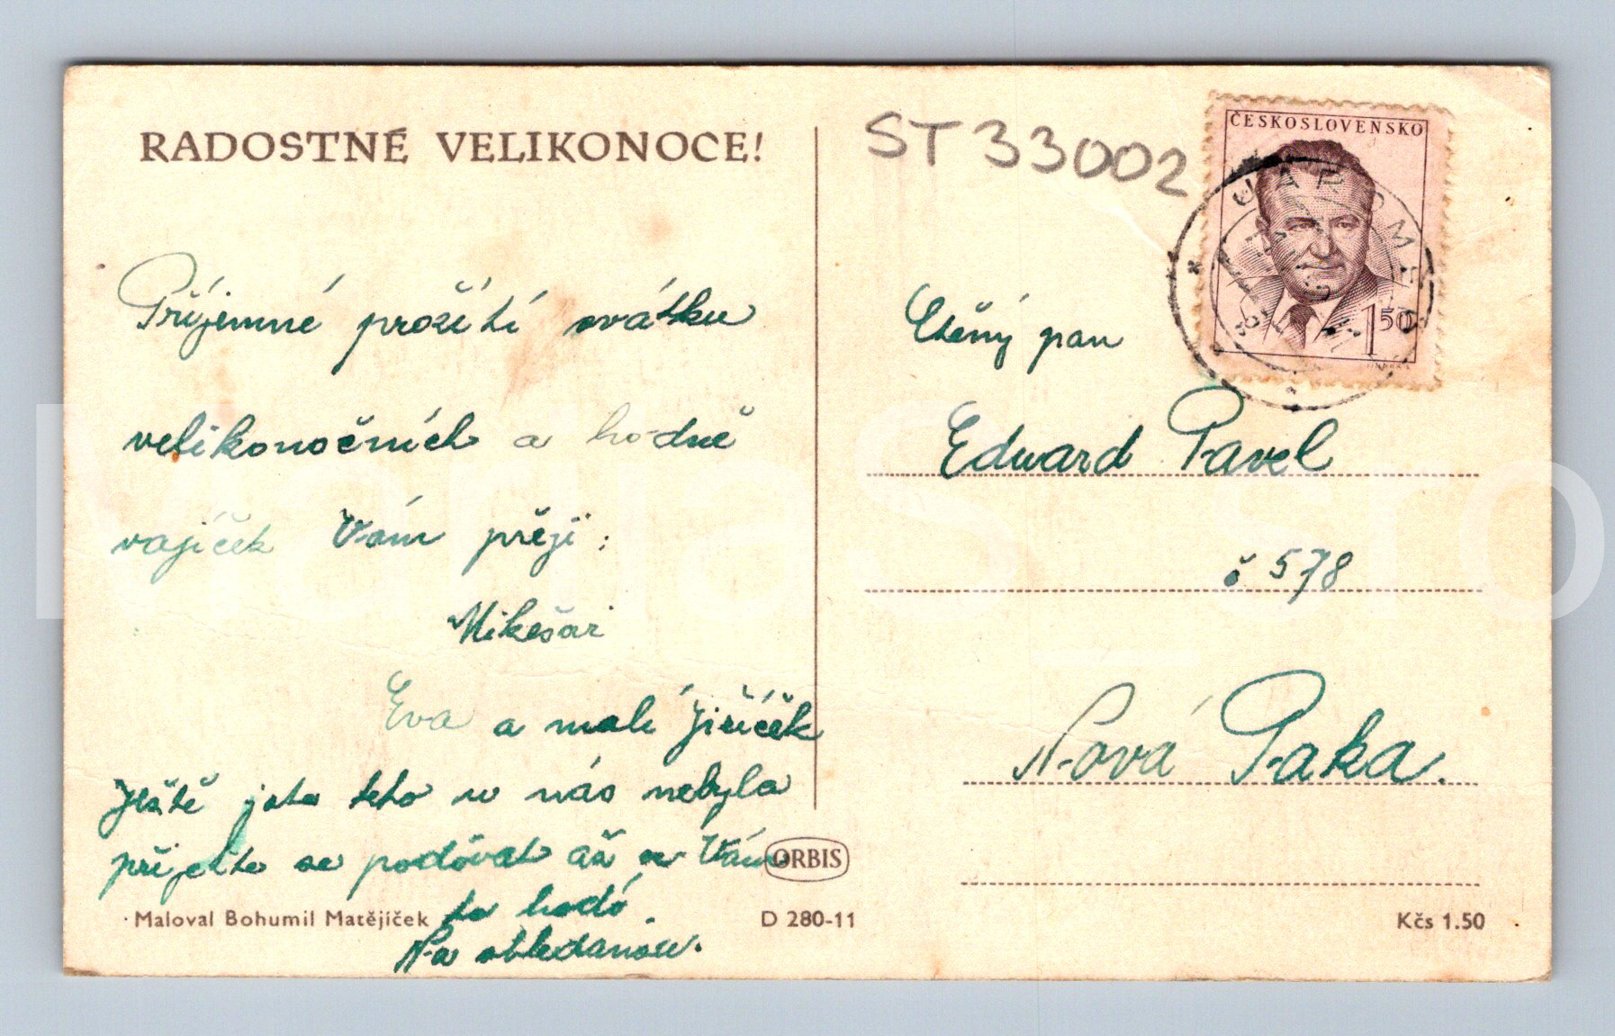 RADOSTNÉ VELIKONOCE!
ST 33002
ČESKOSLOVENSKO
JAROMĚŘ
1 50
Příjemné prožití svátku
velikonočních a hodně
vajíček Vám přejí:
Mikešovi
Eva a malí Jiříček
Ještě jste teto u nás nebyla
přijeďte se podívat až se Vám
to hodí.
Na shledanou.
Ctěný pan
Edward Pavel
č 578
Nová Paka.
ORBIS
Maloval Bohumil Matějíček
D 280-11
Kčs 1.50